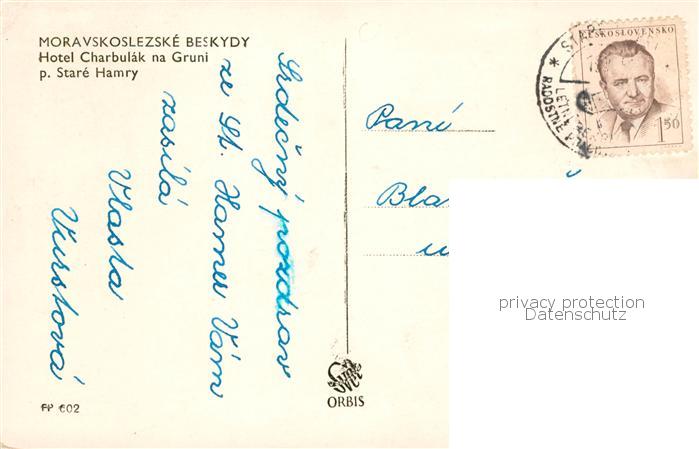 MORAVSKOSLEZSKÉ BESKYDY
Hotel Charbulák na Gruni
p. Staré Hamry
Srdečný pozdrav
ze St. Hamer Vám
zasílá
Vlasta
FP 602
ORBIS
Paní
ČESKOSLOVENSKO
1.50
RADOSTNÉ
privacy protection
Datenschutz